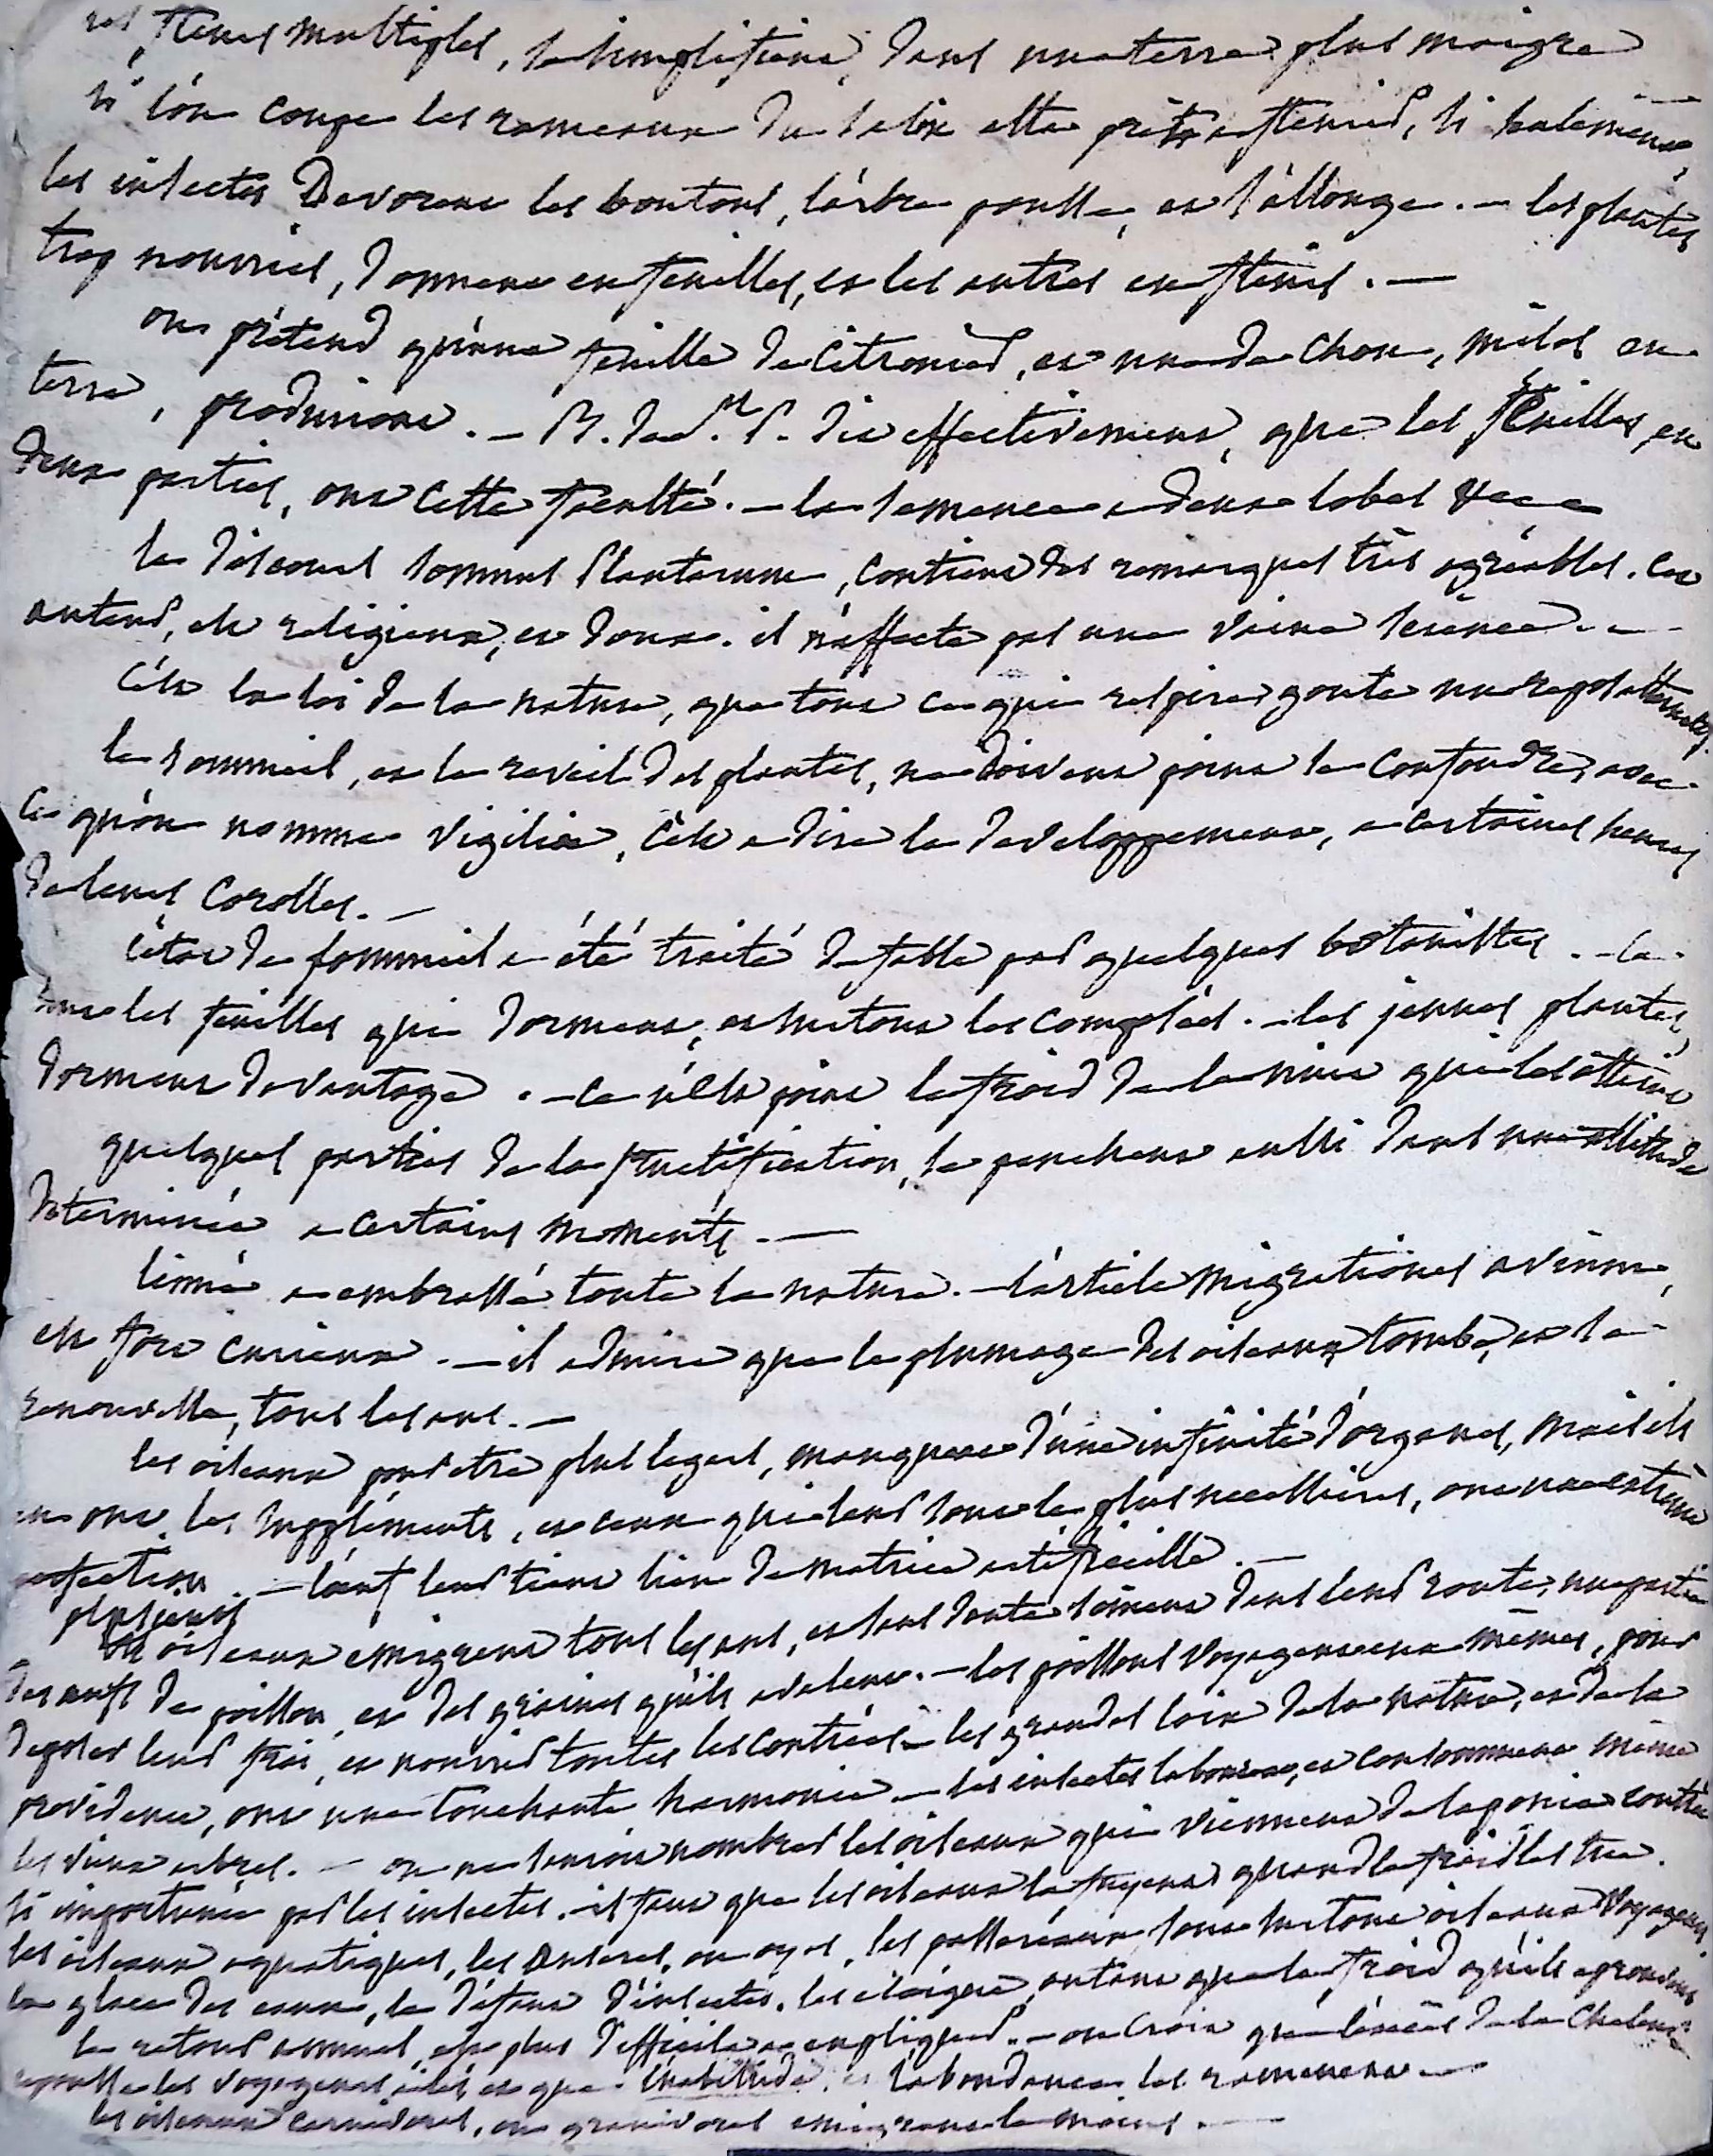 fleurs multiples, se simplifient, dans une terre plus maigre
si l'on coupe les rameaux du salix elle prête a fleurir, si seulement
les insectes Devorent les boutons, l'arbre pousse, et s'allonge. — les plantes
trop nourries, donnent en feuilles, et les autres en fleurs. —
on prétend qu'une feuille de Citronier, et une de Chou, mises en
terre, produisent. — dit effectivement, que les feuilles en
deux parties, ont cette faculté. — la semence a deux lobes
le discours somnus Plantarum, contient des remarques très agréables. cet
auteur, est religieux, et doux. il n'affecte pas une vaine science. —
C'est la loi de la nature, que tout ce qui respire goute un repos
le sommeil, et le reveil des plantes, ne doivent point se confondre, avec
ce qu'on nomme vigiliae, c'est a dire le developpement, a certaines heures
de leurs Corolles. —
l'état de sommeil a été traité de fable par quelques botanistes. — ce
sont les feuilles qui dorment, et surtout les composées. — les jeunes plantes,
dorment davantage. — ce n'est point le froid de la nuit qui les
quelques parties de la fructification, se penchent aussi dans une attitude
determinée a certains moments. —
linné a embrassé toute la nature. — l'article migrationes avium,
est fort curieux. — il admire que le plumage des oiseaux tombe, et se
renouvelle, tous les ans. —
les oiseaux pour etre plus legers, manquent d'une infinité d'organes, mais ils
en ont les suppléments, et ceux qui leur sont le plus necessaires, ont une extrême
perfection. — l'oeuf leur tient lieu de matrice artificielle. —
plusieurs
oiseaux emigrent tous les ans, et sans doute sèment dans leur route, une partie
des oeufs de poisson, et des graines qu'ils avalent. — les poissons voyagent eux mêmes, pour
deposer leur frai, et nourrir toutes les contrées. — les grandes loix de la nature, et de la
providence, ont une touchante harmonie. — les insectes et consomment même
les vieux arbres. — on ne sauroit nombrer les oiseaux qui viennent de laponie contrée
si importunée par les insectes. — il faut que les oiseaux la fuyent quand le froid les tue.
les oiseaux aquatiques, les anseres, ou oyes, les passereaux sont surtout oiseaux voyageurs.
la glace des eaux, le défaut d'insectes, les eloigne, autant que le froid qu'ils
le retour annuel, est plus difficile a expliquer. — on croit que l'excès de la Chaleur
repousse les voyageurs ailés et que l'habitude, et l'abondance les ramenent. —
les oiseaux carnivores, ou granivores emigrent le moins. —